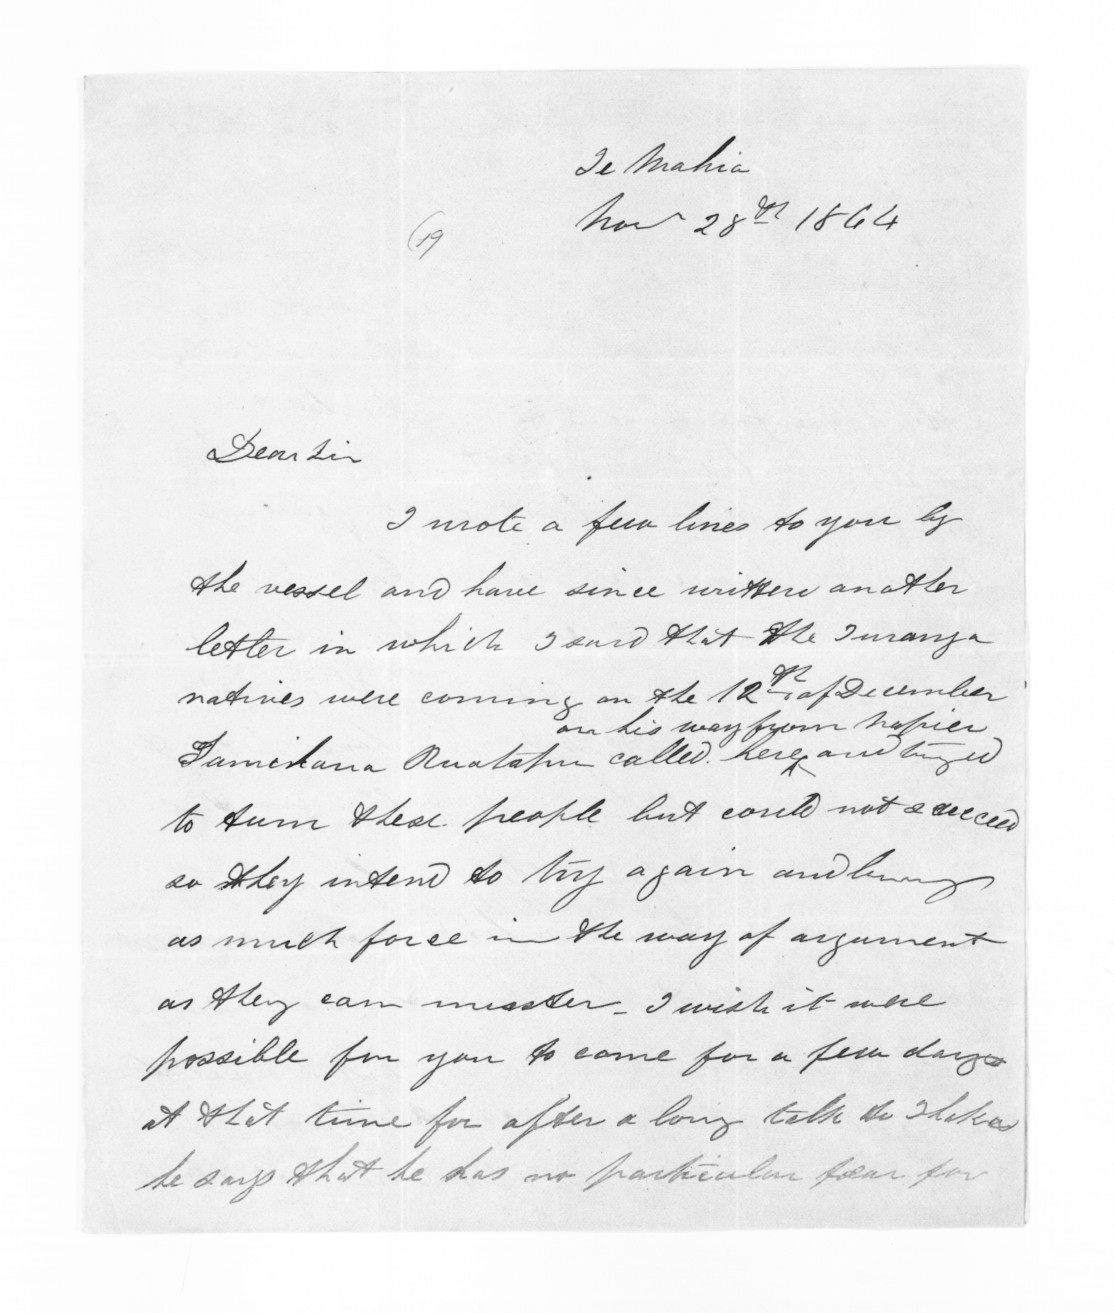 Te Mahia
Nov 28th 1864
(19
Dear Sir
I wrote a few lines to you by
the vessel and have since written another
letter in which I said that the Turanga
natives were coming on the 12th of December
on his way from Napier
Tamihana Ruatapu called here and tryed
to turn these people but could not succeed
so they intend to try again and bring
as much force in the way of argument
as they can muster_ I wish it were
possible for you to come for a few days
at that time for after a long talk to Ihaka
he says that he has no particular fear for